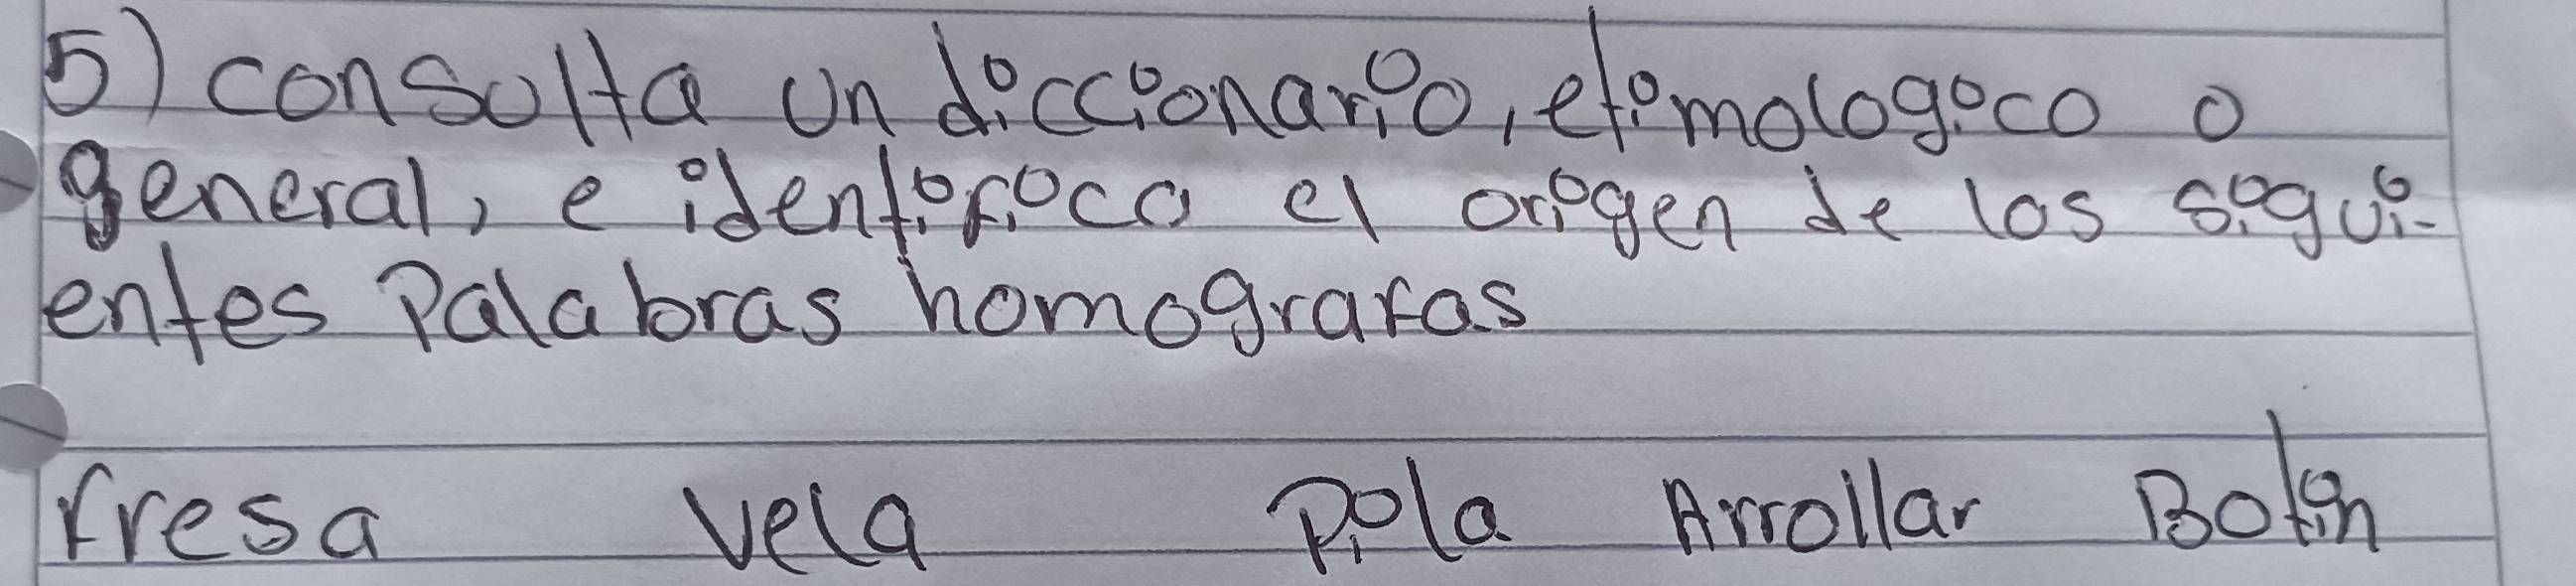 5) consulta un diccionario, etimologico o
general, e identifica el origen de las sigui-
entes Palabras homografas
fresa vela Pila Arrollar Botin